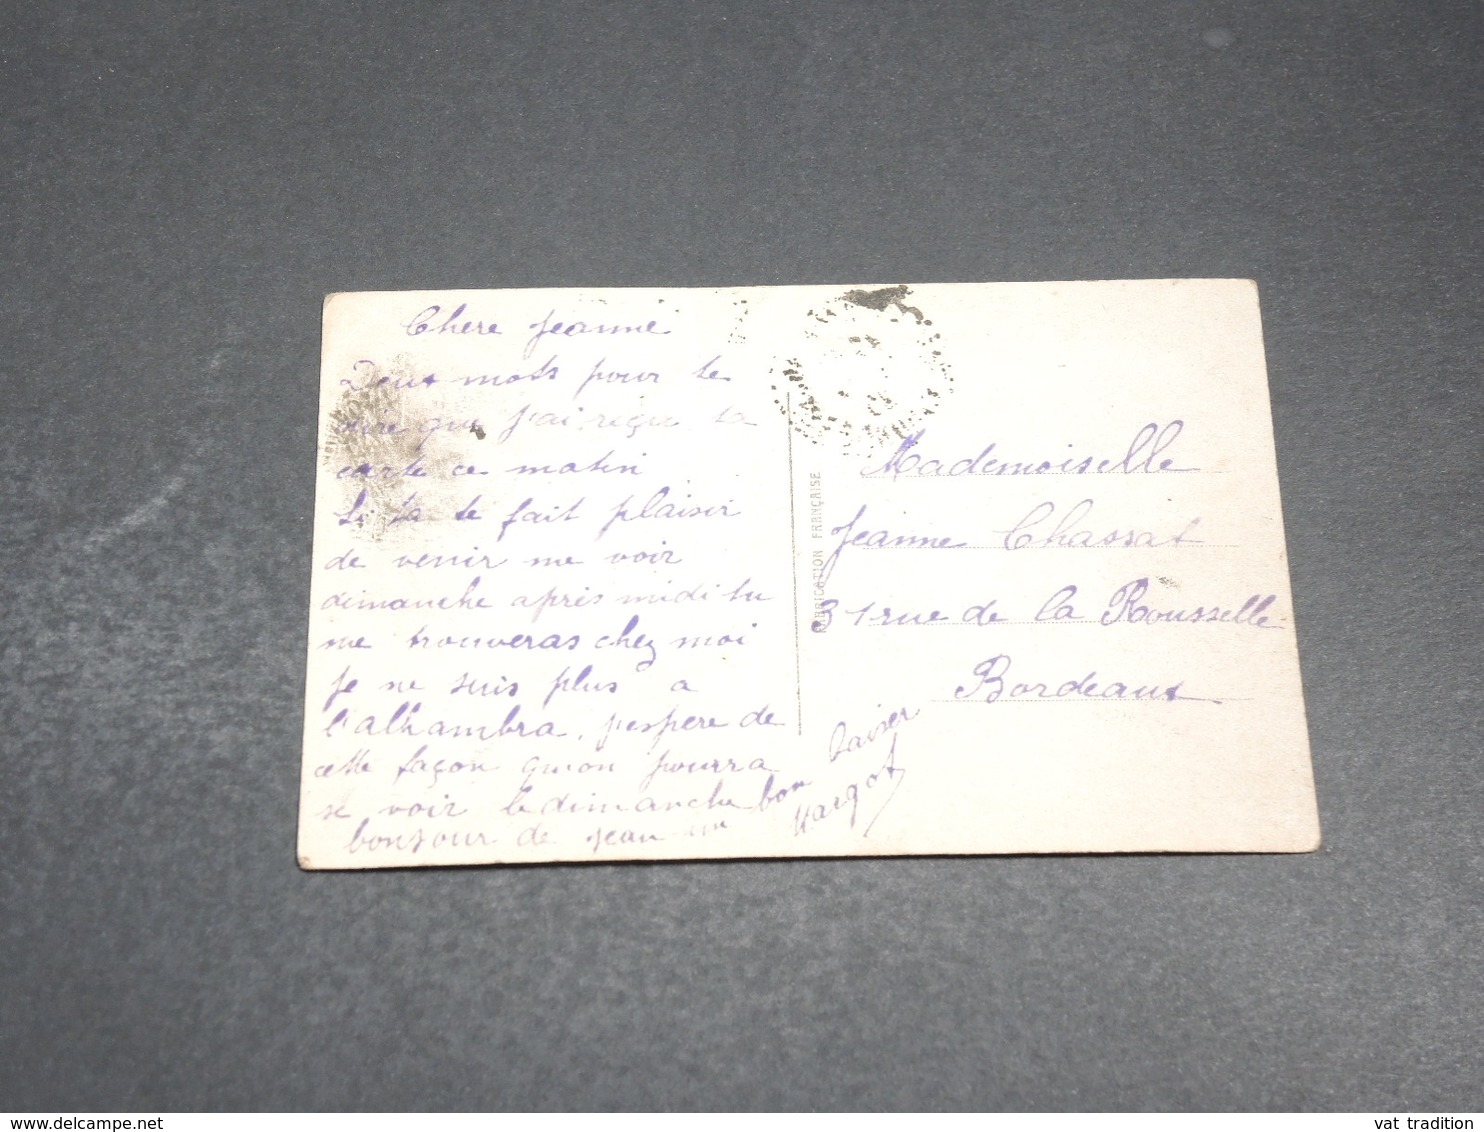 Chere Jeanne
Deux mots pour te
dire que j'ai reçu ta
carte ce matin
Si ta te fait plaisir
de venir me voir
dimanche après midi tu
me trouveras chez moi
je ne suis plus a
l'alhambra, j'espère de
cette façon qu'on pourra
se voir le dimanche
bonjour de jean un bon baiser
Margot
FABRICATION FRANÇAISE
Mademoiselle
Jeanne Chassat
31 rue de la Rousselle
Bordeaux
vat tradition